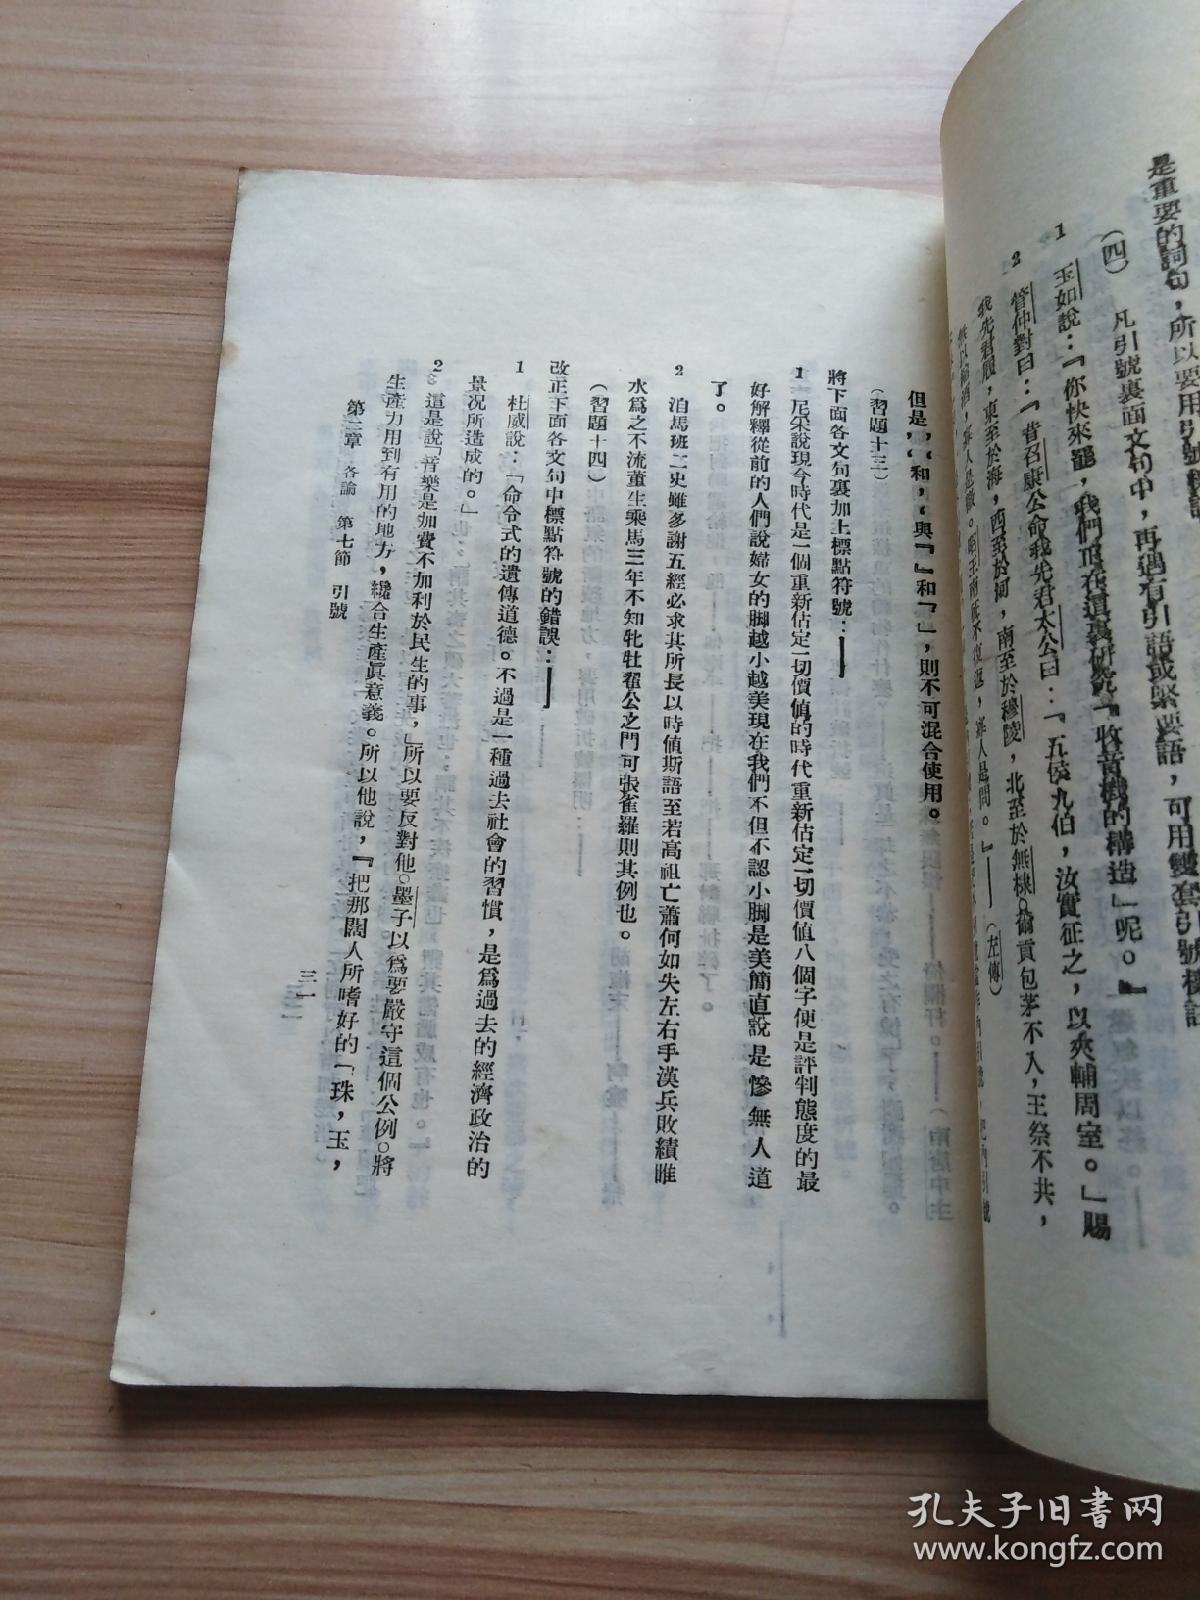 是重要的詞句，所以要用引號標記
（四）　凡引號裏面文句中，再遇有引語或緊要語，可用雙套引號標記
1　玉如說：『你快來罷，我們正在這裏研究「收音機的構造」呢。』
2　管仲對曰：『昔召康公命我先君太公曰：「五侯九伯，汝實征之，以夾輔周室。」賜
我先君履，東至於海，西至於河，南至於穆陵，北至於無棣。爾貢包茅不入，王祭不共，
無以縮酒，寡人是徵。昭王南征不復返，寡人是問。』——（左傳）
但是，‘‘和，‘與『』和「」，則不可混合使用。
（習題十三）
將下面各文句裏加上標點符號：——
1　尼采說現今時代是一個重新估定一切價值的時代重新估定一切價值八個字便是評判態度的最
好解釋從前的人們說婦女的脚越小越美現在我們不但不認小脚是美簡直說是慘無人道
了。
2　洎馬班二史雖多謝五經必求其所長以時値斯語至若高祖亡蕭何如失左右手漢兵敗績睢
水爲之不流董生乘馬三年不知牝牡翟公之門可張雀羅則其例也。
（習題十四）
改正下面各文句中標點符號的錯誤：——
1　杜威說：「命令式的遺傳道德。不過是一種過去社會的習慣，是爲過去的經濟政治的
景况所造成的。」
2　這是說「音樂是加費不加利於民生的事，」所以要反對他。墨子以爲要嚴守這個公例。將
生產力用到有用的地方，纔合生產眞意義。所以他說，『把那闊人所嗜好的「珠，玉，
第二章　各論　第七節　引號
三一
孔夫子旧书网
www.kongfz.com